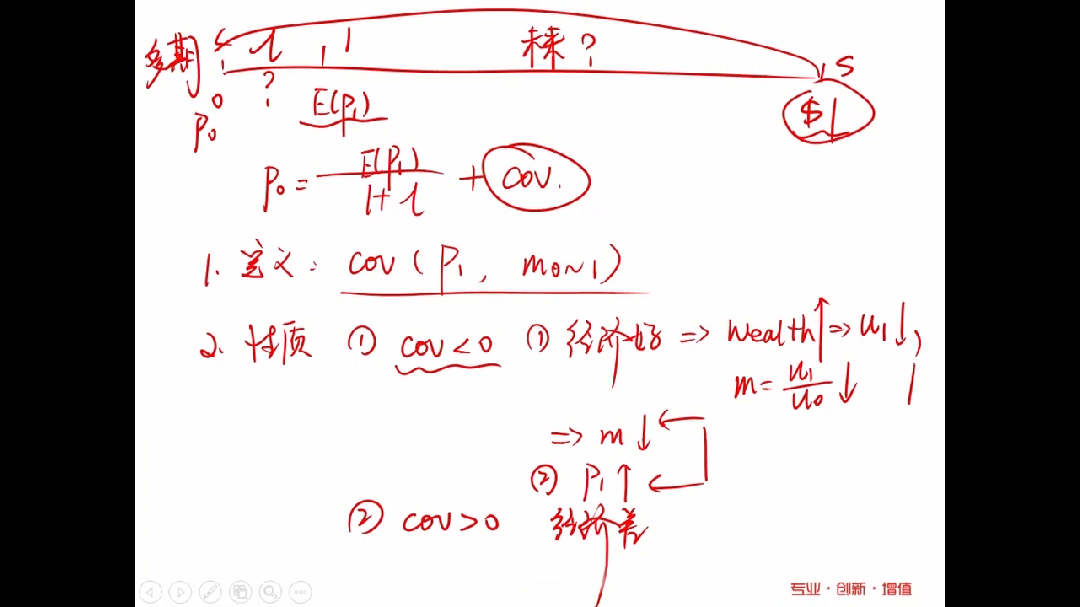 多期 0 l 1 未来? s
P₀ ? E(P₁) $1
P₀ = E(P₁) / 1+l + cov.
1. 定义: cov(P₁, m0~1)
2. 性质 ① cov<0 ① 经济好 => Wealth↑ => u₁↓,
m = u₁/u₀ ↓
=> m↓
② P₁↑
② cov>0 经济差
专业·创新·增值